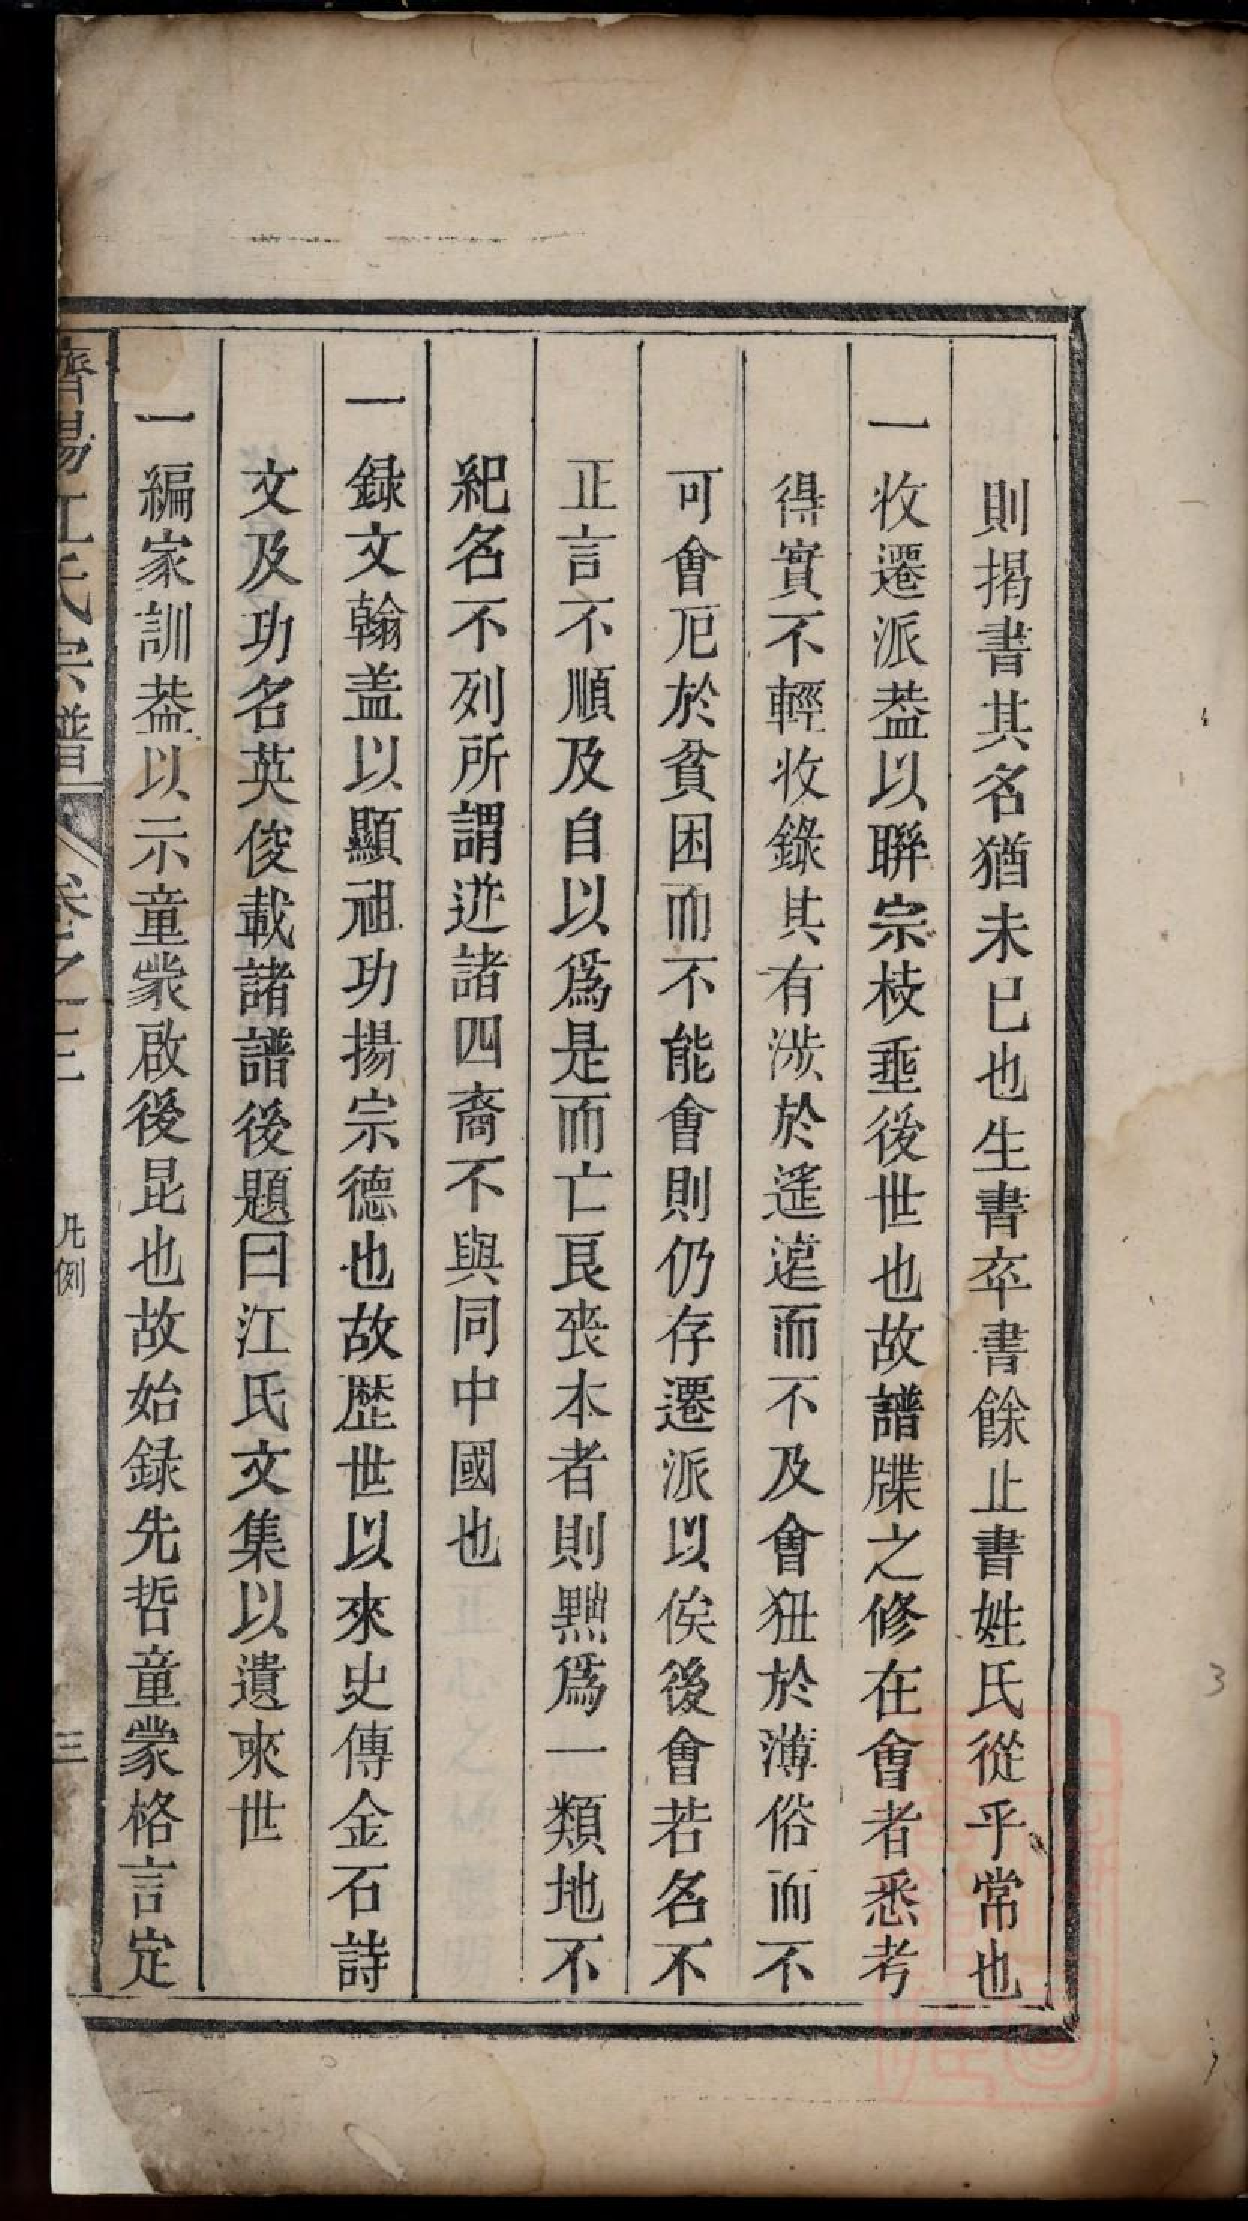 則揭書其名猶未已也生書卒書餘止書姓氏從乎常也
一收遷派葢以聨宗枝垂後世也故譜牒之修在會者悉考
得實不輕收錄其有涉於遙遠而不及會狃於薄俗而不
可會厄於貧困而不能會則仍存遷派以俟後會若名不
正言不順及自以爲是而亡良喪本者則黜爲一類地不
紀名不列所謂迸諸四裔不與同中國也
一録文翰盖以顯祖功揚宗德也故歴世以來史傳金石詩
文及功名英俊載諸譜後題曰江氏文集以遺來世
一編家訓葢以示童蒙啟後昆也故始録先哲童蒙格言定
濟陽江氏宗譜 卷之一 凡例 三
3